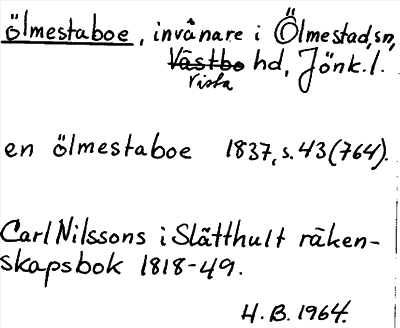 ölmestaboe, invånare i Ölmestad, sn,
Västbo hd, Jönk. l.
Vista
en ölmestaboe 1837, s. 43 (764).
Carl Nilssons i Slätthult räken-
skapsbok 1818-49.
H. B. 1964.